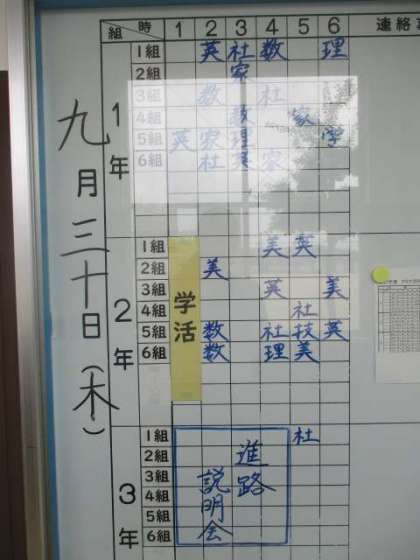 組 時 1 2 3 4 5 6 連絡事
九月三十日(木)
1年
1組 英 社 数 理
2組 家
3組 数 社
4組 数 家
5組 英 家 理 学
6組 社 英 家
2年
学活
1組 美 英
2組 美
3組 英 美
4組 社
5組 数 社 技 英
6組 数 理 美
3年
1組 社
2組
3組
4組
5組
6組
進路
説明会